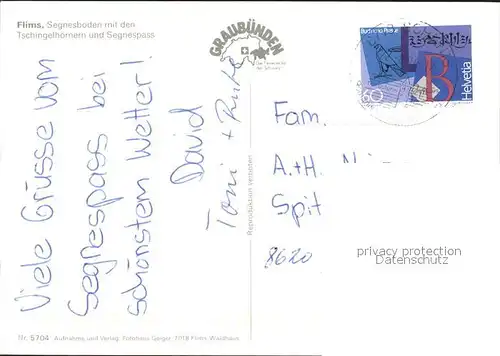 Flims, Segnesboden mit den
Tschingelhörnern und Segnespass
GRAUBÜNDEN
Die Ferienecke
der Schweiz
Helvetia
60
B
Viele Grüsse vom
Segnespass bei
schönstem Wetter!
David
Toni +
Reproduktion verboten
Fam.
A.+H.
Spit
8620
privacy protection
Datenschutz
Nr. 5704 Aufnahme und Verlag: Fotohaus Geiger, 7018 Flims Waldhaus